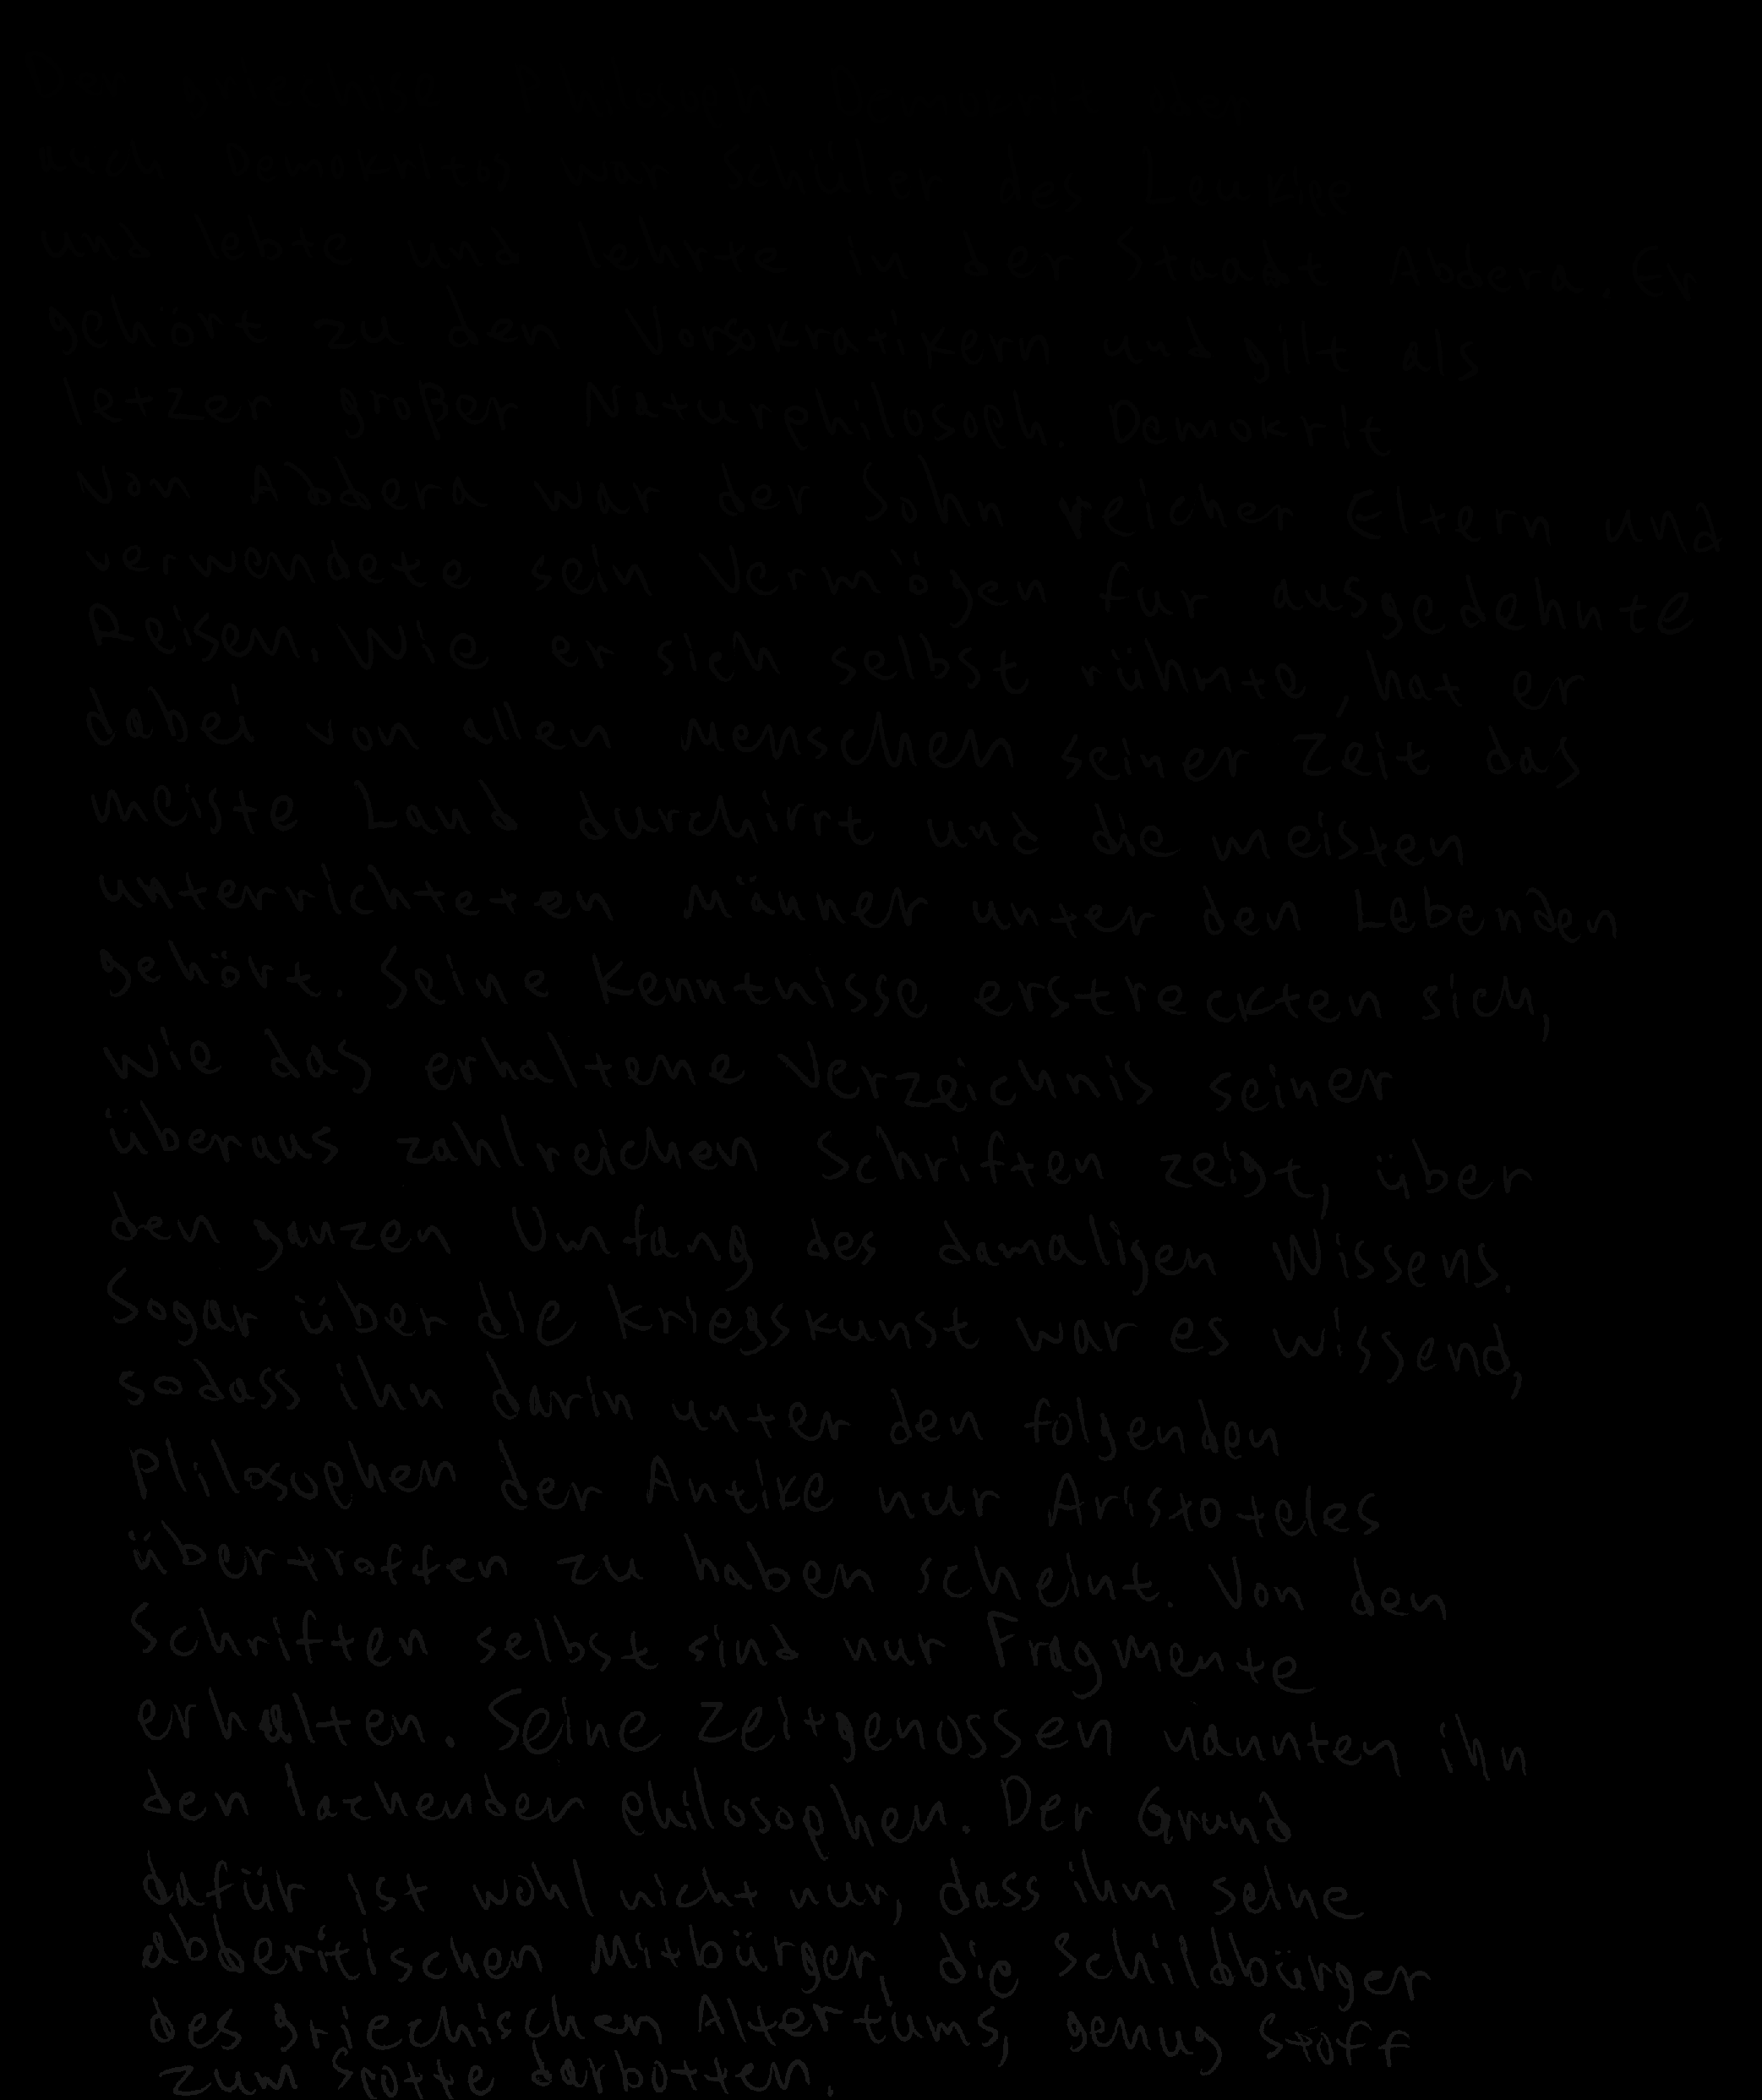 auch Demokritos war Schüler des Leukipp
und lebte und lehrte in der Staadt Abdera. Er
gehört zu den Vorsokratikern und gilt als
letzer großer Naturphilosoph. Demokrit
von Abdera war der Sohn reicher Eltern und
verwendete sein Vermögen fur ausgedehnte
Reisen. Wie er sich selbst rühmte, hat er
dabei von allen Menschen seiner Zeit das
meiste Land durchirrt und die meisten
unterrichteten Männer unter den Lebenden
gehört. Seine Kenntnisse erstreckten sich,
wie das erhaltene Verzeichnis seiner
überaus zahlreichen Schriften zeigt, über
den ganzen Umfang des damaligen Wissens.
Sogar über die Kriegskunst war es wissend,
sodass ihn darin unter den folgenden
Plilosophen der Antike nur Aristoteles
übertroffen zu haben scheint. Von den
Schriften selbst sind nur Fragmente
erhalten. Seine Zeitgenossen nannten ihn
den lachenden Philosophen. Der Grund
dafür ist wohl nicht nur, dass ihm seine
abderitischen Mitbürger, die Schildbürger
des griechischen Altertums, genug Stoff
zum Spotte darbotten.